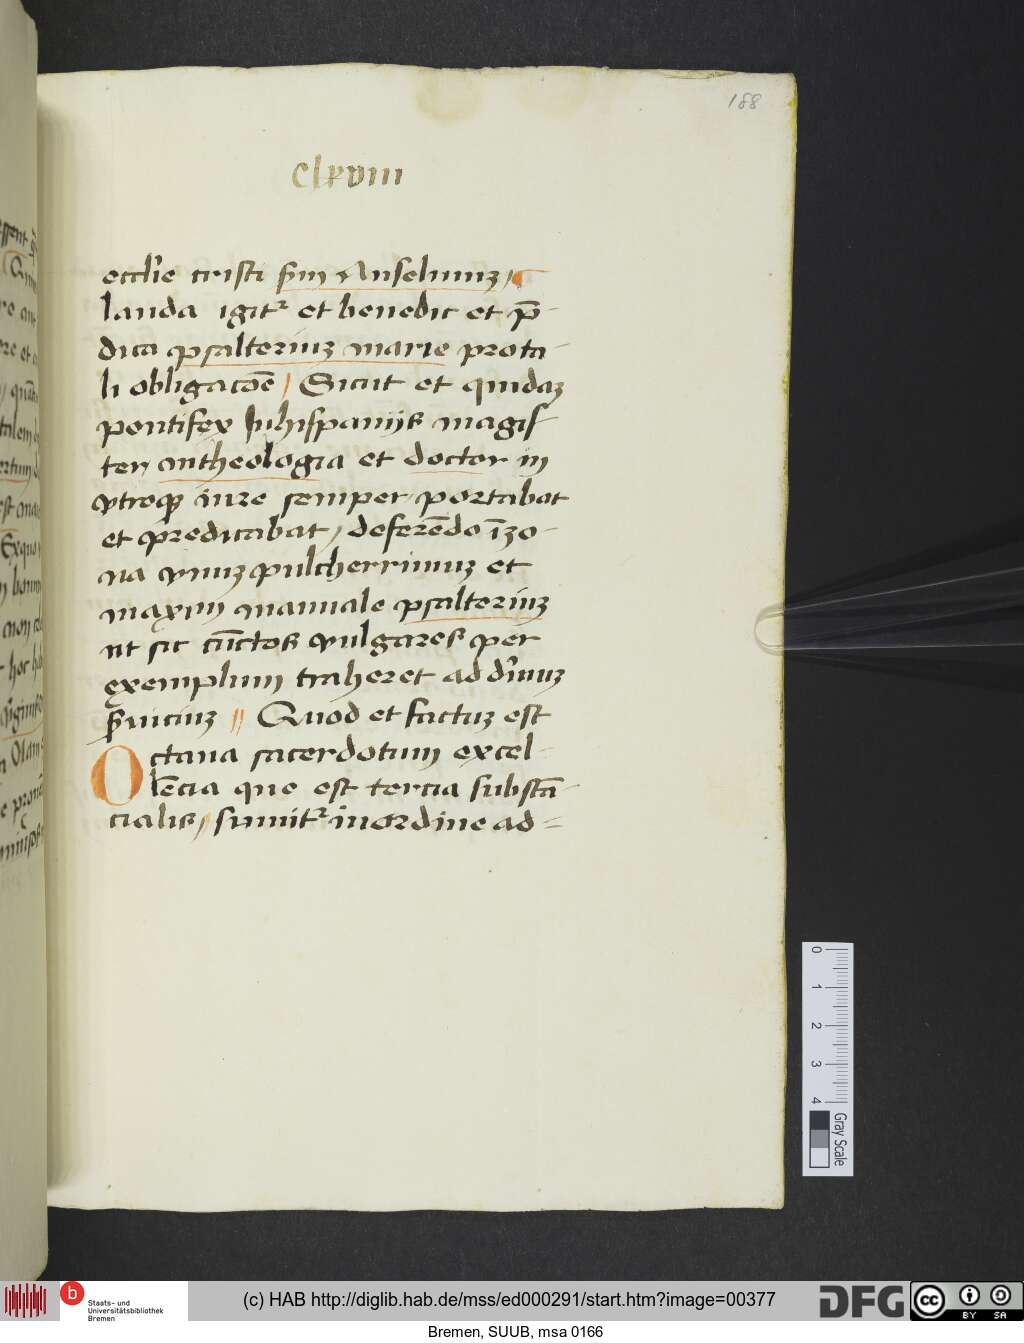 188
clxviii
eccl̄ie cristi s̄m Anselmuꝫ /
lauda igitꝛ et benedic et p̄-
dica psalteriuꝫ marie prota-
li obligacōe / Sicut et quidaꝫ
pontifex In hispanijs magis-
ter / in theologia et doctor in
vtroqꝫ iure semper portabat
et predicabat / deferēdo ī zo-
na vnuꝫ pulcherrimuꝫ et
maxim manuale psalteriuꝫ
ut sic cūctos vulgares per
exemplum traheret ad d̄inuꝫ
s̄uiciuꝫ // Quod et factuꝫ est
Octaua sacerdotum excel-
lēcia que est tercia substā-
cialis / sumitꝛ in ordine ad=
0 1 2 3 4
Gray Scale
b Staats- und
Universitätsbibliothek
Bremen
(c) HAB http://diglib.hab.de/mss/ed000291/start.htm?image=00377
DFG
cc BY SA
Bremen, SUUB, msa 0166